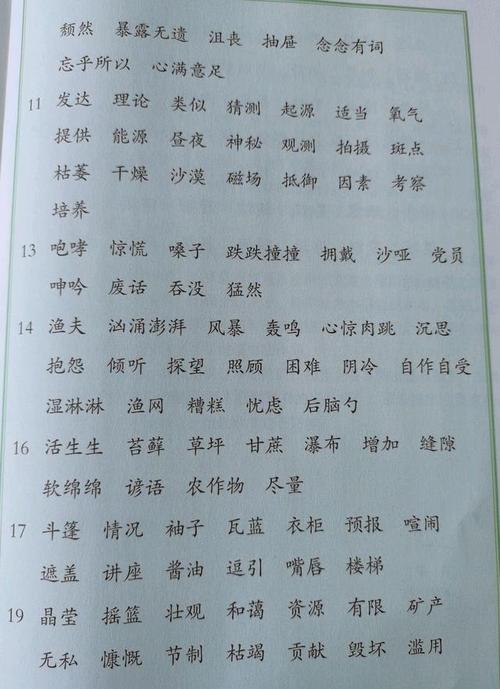 颓然 暴露无遗 沮丧 抽屉 念念有词
忘乎所以 心满意足
11 发达 理论 类似 猜测 起源 适当 氧气
提供 能源 昼夜 神秘 观测 拍摄 斑点
枯萎 干燥 沙漠 磁场 抵御 因素 考察
培养
13 咆哮 惊慌 嗓子 跌跌撞撞 拥戴 沙哑 党员
呻吟 废话 吞没 猛然
14 渔夫 汹涌澎湃 风暴 轰鸣 心惊肉跳 沉思
抱怨 倾听 探望 照顾 困难 阴冷 自作自受
湿淋淋 渔网 糟糕 忧虑 后脑勺
16 活生生 苔藓 草坪 甘蔗 瀑布 增加 缝隙
软绵绵 谚语 农作物 尽量
17 斗篷 情况 袖子 瓦蓝 衣柜 预报 喧闹
遮盖 讲座 酱油 逗引 嘴唇 楼梯
19 晶莹 摇篮 壮观 和蔼 资源 有限 矿产
无私 慷慨 节制 枯竭 贡献 毁坏 滥用